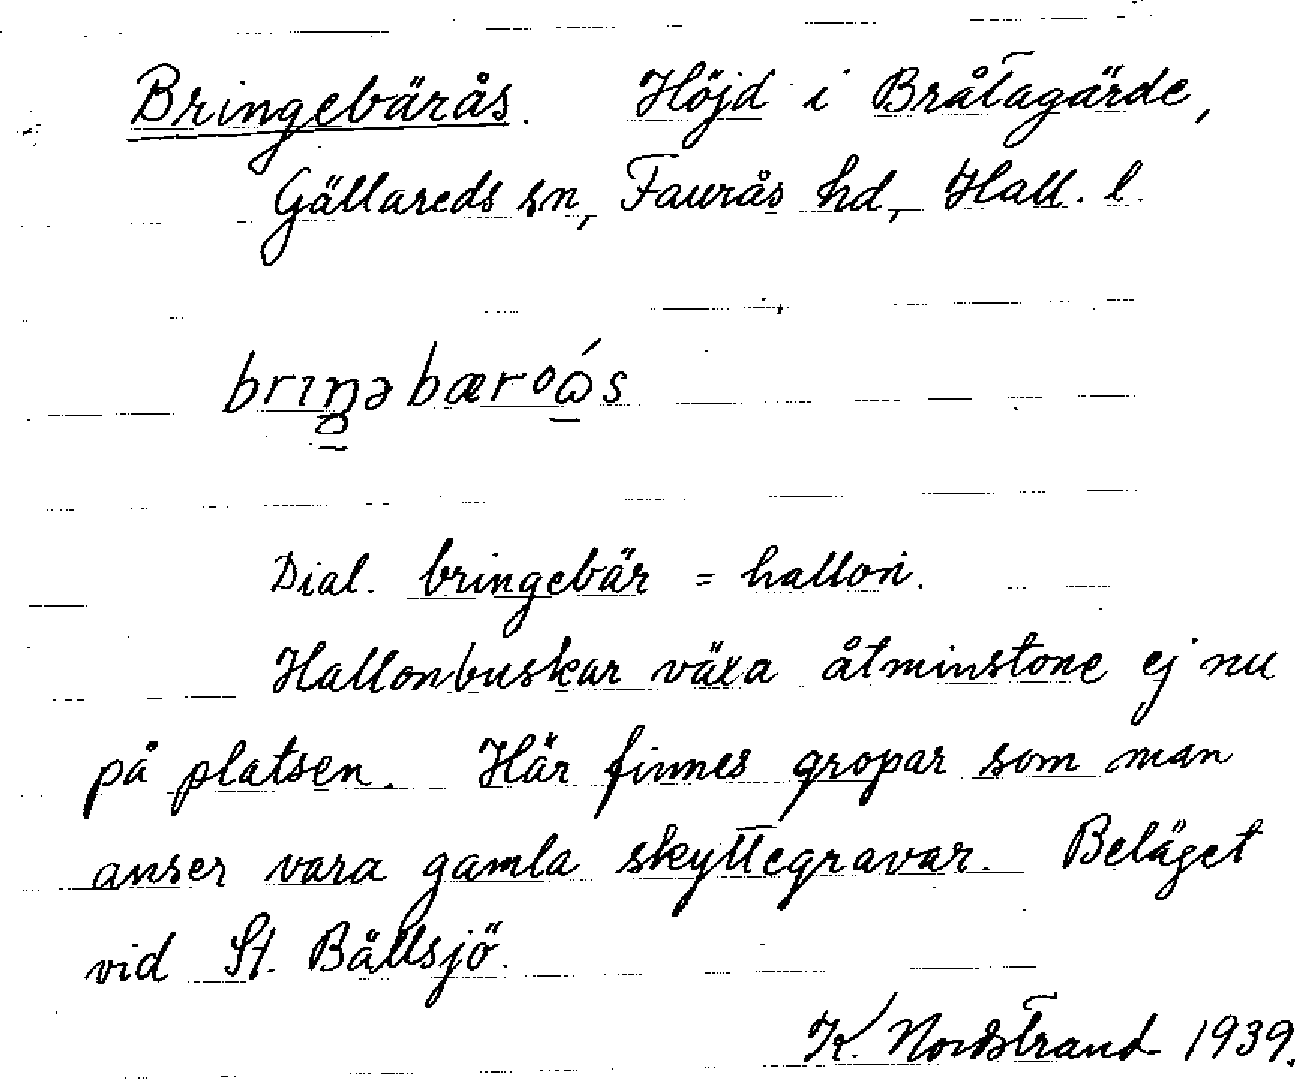 Bringebärås. Höjd i Bråtagärde,
Gällareds sn, Faurås hd, Hall. l.
brıŋəbærωs
Dial. bringebär = hallon.
Hallonbuskar växa åtminstone ej nu
på platsen. Här finnes gropar som man
anser vara gamla skyttegravar. Beläget
vid St. Bållsjö.
K. Nordstrand 1939.